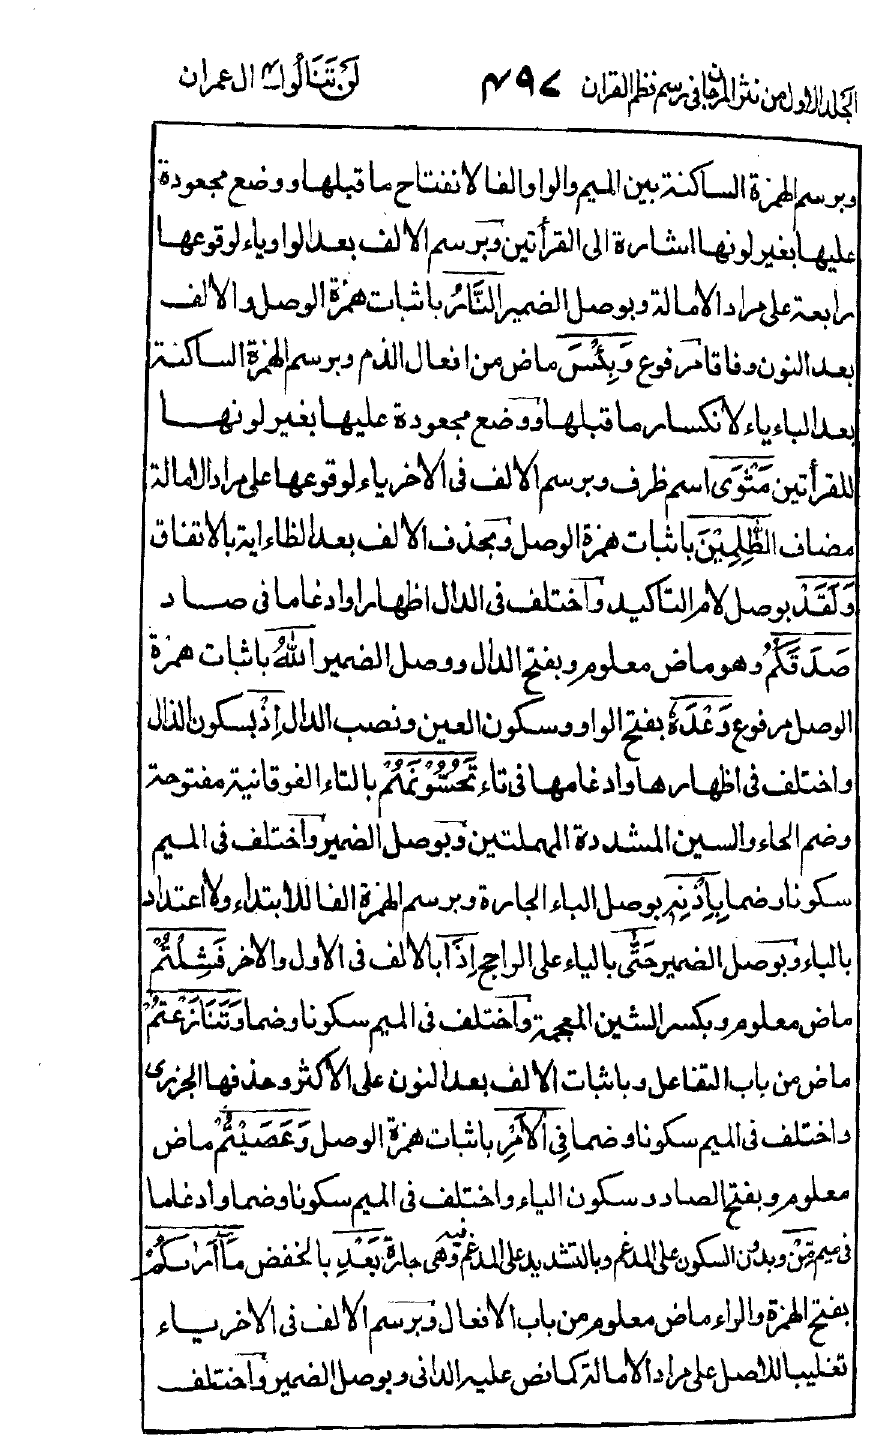 الجلد الاول من نثر المرجان فی رسم نظم القران ۴۹۷ لن تنالوا ۴ ال عمران
وبرسم الهمزة الساكنة بين الميم والواو الفا لانفتاح ما قبلها ووضع مجعودة
عليها بغير لونها اشارة الى القرأتين وبرسم الالف بعد الواو ياء لوقوعها
رابعة على مراد الامالة وبوصل الضمير النَّارُ باثبات همزة الوصل والالف
بعد النون وفاقا مرفوع وَبِئْسَ ماض من افعال الذم وبرسم الهمزة الساكنة
بعد الباء ياء لانكسار ما قبلها ووضع مجعودة عليها بغير لونها
للقرأتين مَثْوَى اسم ظرف وبرسم الالف فى الاخر ياء لوقوعها على مراد الامالة
مضاف الظّٰلِمِيْنَ باثبات همزة الوصل وبحذف الالف بعد الظاء اية بالاتفاق
وَلَقَدْ بوصل لام التأكيد واختلف فى الدال اظهارا وادغاما فى صاد
صَدَقَكُمُ وهو ماض معلوم وبفتح الدال ووصل الضمير اللهُ باثبات همزة
الوصل مرفوع وَعْدَهٗ بفتح الواو وسكون العين ونصب الدال اِذْ بسكون الذال
واختلف فى اظهارها وادغامها فى تاء تَحُسُّوْنَهُمْ بالتاء الفوقانية مفتوحة
وضم الحاء والسين المشددة المهملتين وبوصل الضمير واختلف فى الميم
سكونا وضما بِاِذْنِهٖ بوصل الباء الجارة وبرسم الهمزة الفا للابتداء ولا اعتداد
بالباء وبوصل الضمير حَتّٰى بالياء على الراجح اِذَا بالالف فى الاول والاخر فَشِلْتُمْ
ماض معلوم وبكسر الشين المعجمة واختلف فى الميم سكونا وضما وَتَنَازَعْتُمْ
ماض من باب التفاعل وباثبات الالف بعد النون على الاكثر وحذفها الجزرى
واختلف فى الميم سكونا وضما فِى الْاَمْرِ باثبات همزة الوصل وَعَصَيْتُمْ ماض
معلوم وبفتح الصاد وسكون الياء واختلف فى الميم سكونا وضما وادغاما
فى ميم مِّنْ وبدون السكون على المدغم وبالتشديد على المدغم فيه وهى جارة بَعْدِ بالخفض مَآ اَرٰىكُمْ
بفتح الهمزة والراء ماض معلوم من باب الافعال وبرسم الالف فى الاخر ياء
تغليبا للاصل على مراد الامالة كما نص عليه الدانى وبوصل الضمير واختلف